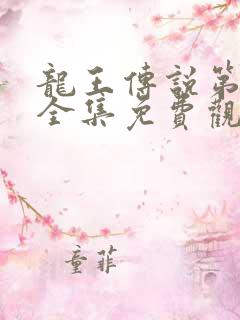 龍王傳說第
全集免費觀
童菲